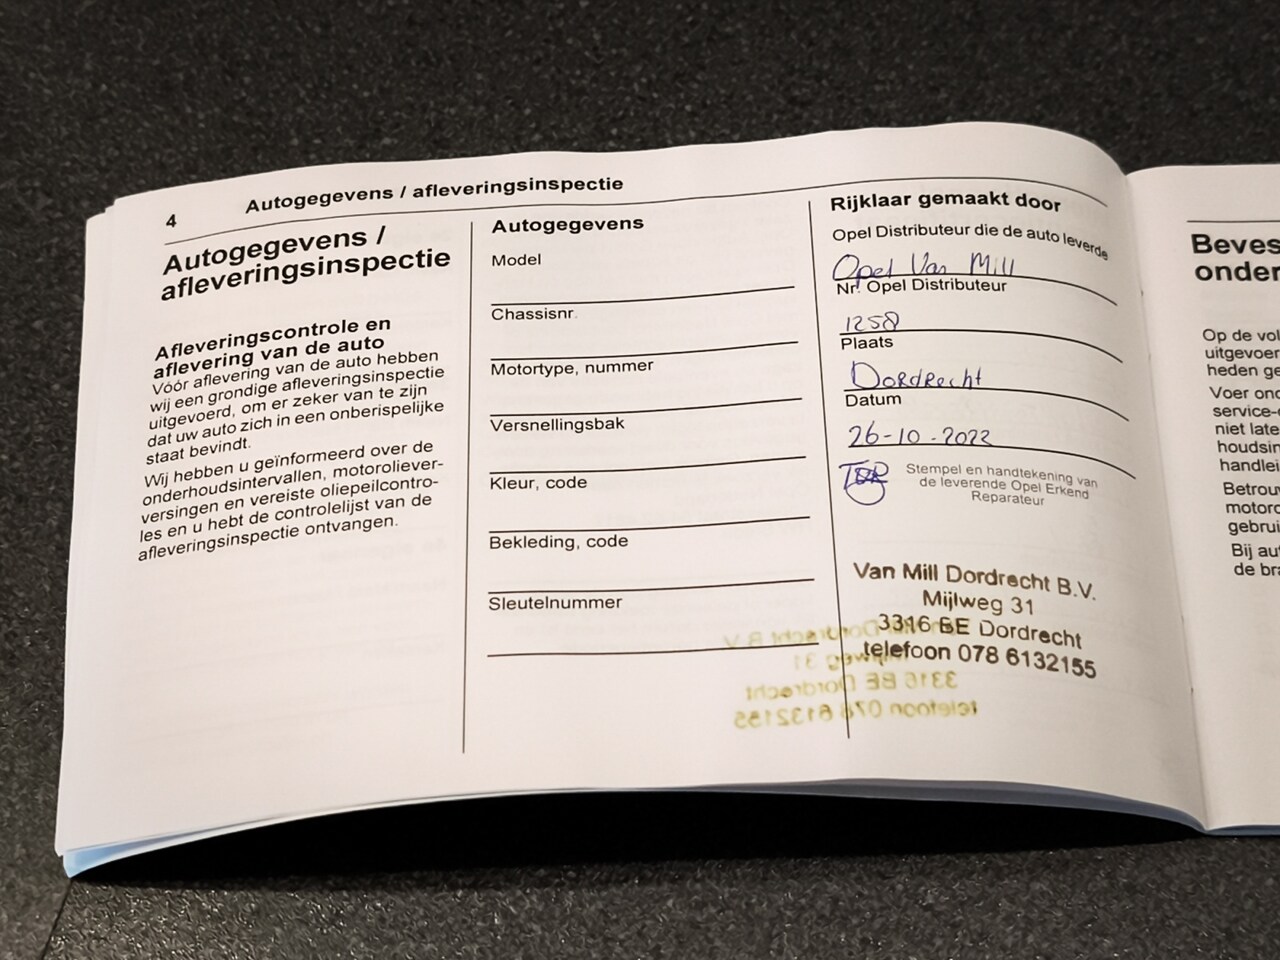 4
Autogegevens / afleveringsinspectie
Autogegevens /
afleveringsinspectie
Afleveringscontrole en
aflevering van de auto
Vóór aflevering van de auto hebben
wij een grondige afleveringsinspectie
uitgevoerd, om er zeker van te zijn
dat uw auto zich in een onberispelijke
staat bevindt.
Wij hebben u geïnformeerd over de
onderhoudsintervallen, motoroliever-
versingen en vereiste oliepeilcontro-
les en u hebt de controlelijst van de
afleveringsinspectie ontvangen.
Autogegevens
Model
Chassisnr.
Motortype, nummer
Versnellingsbak
Kleur, code
Bekleding, code
Sleutelnummer
Rijklaar gemaakt door
Opel Distributeur die de auto leverde
Opel Van Mill
Nr. Opel Distributeur
1258
Plaats
Dordrecht
Datum
26-10-2022
Stempel en handtekening van
de leverende Opel Erkend
Reparateur
Van Mill Dordrecht B.V.
Mijlweg 31
3316 BE Dordrecht
telefoon 078 6132155
Beves
onder
Op de vol
uitgevoer
heden ge
Voer ond
service-
niet late
houdsin
handlei
Betrouw
motoro
gebrui
Bij au
de bra